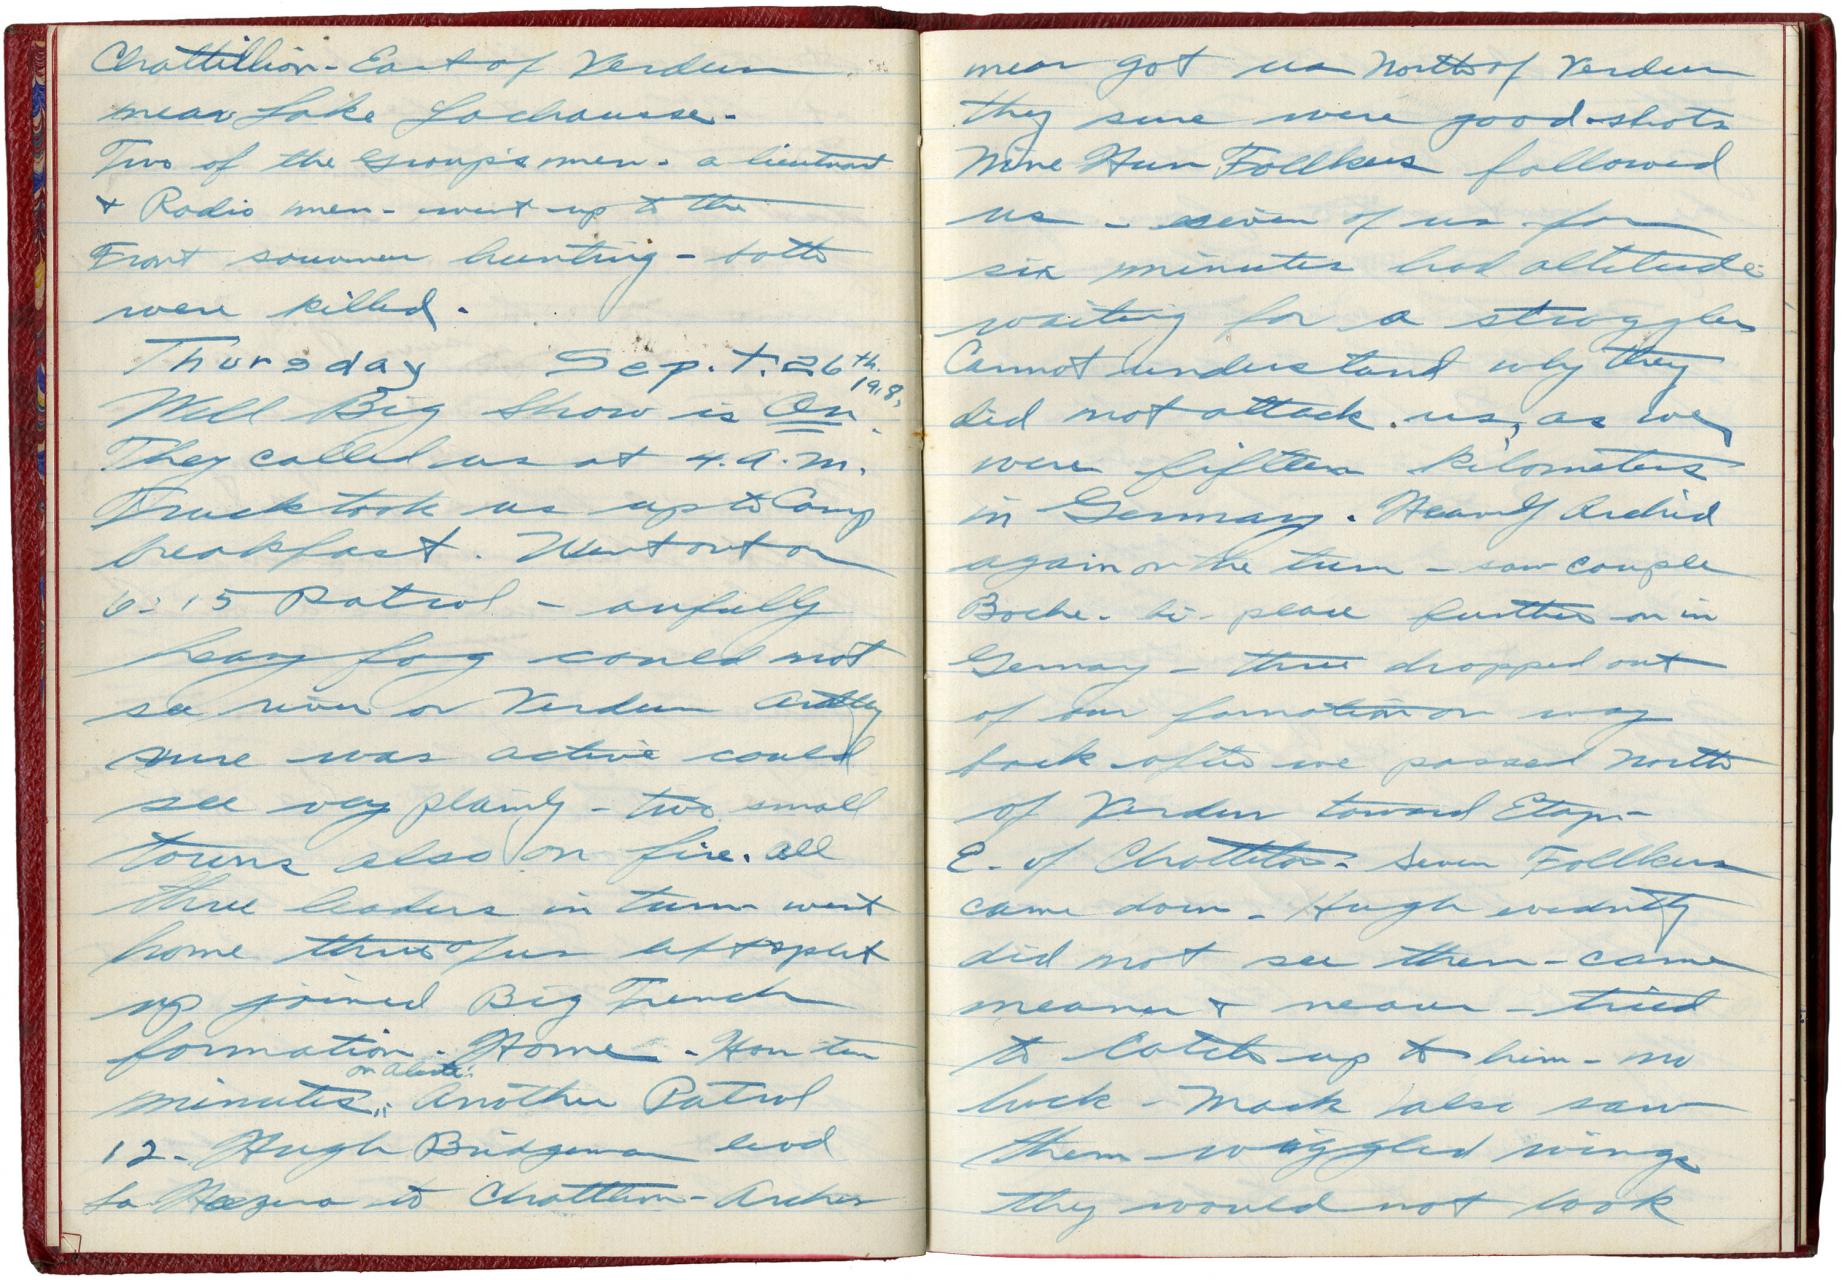 Chattillion - East of Verdun
near Lake Lachausse -
Two of the Group's men - a lieutenant
+ Radio men - went up to the
Front souvenir hunting - both
were killed.
Thursday Sep.t. 26th. 1918,
Well Big Show is On.
They called us at 4. A.M.
Truck took us up to Camp
breakfast. Went out on
6:15 Patrol - awfully
heavy fog could not
see river or Verdun Artlly
sure was active could
see very plainly - two small
towns also on fire. All
three leaders in turn went
home three of us left split
up joined Big French
formation - Home - Hon ten
minutes, on Alerte. Another Patrol
12 - Hugh Bridgeman lead
La to Chattlion - Arches
near got us North of Verdun
they sure were good shots
Nine Hun Follkers followed
us - seven of us for
six minutes had altitude
waiting for a straggler
Cannot understand why they
did not attack us, as we
were fifteen kilometers
in Germany. Heavily Archied
again on the turn - saw couple
Boche - bi-plane further on in
Germany - three dropped out
of our formation on way
back after we passed North
of Verdun toward Etap-
E. of - Seven Follkers
came down - Hugh evidntly
did not see them - came
nearer + nearer - tried
to catch up to him - no
luck - Mack also saw
them wiggled wings
they would not look